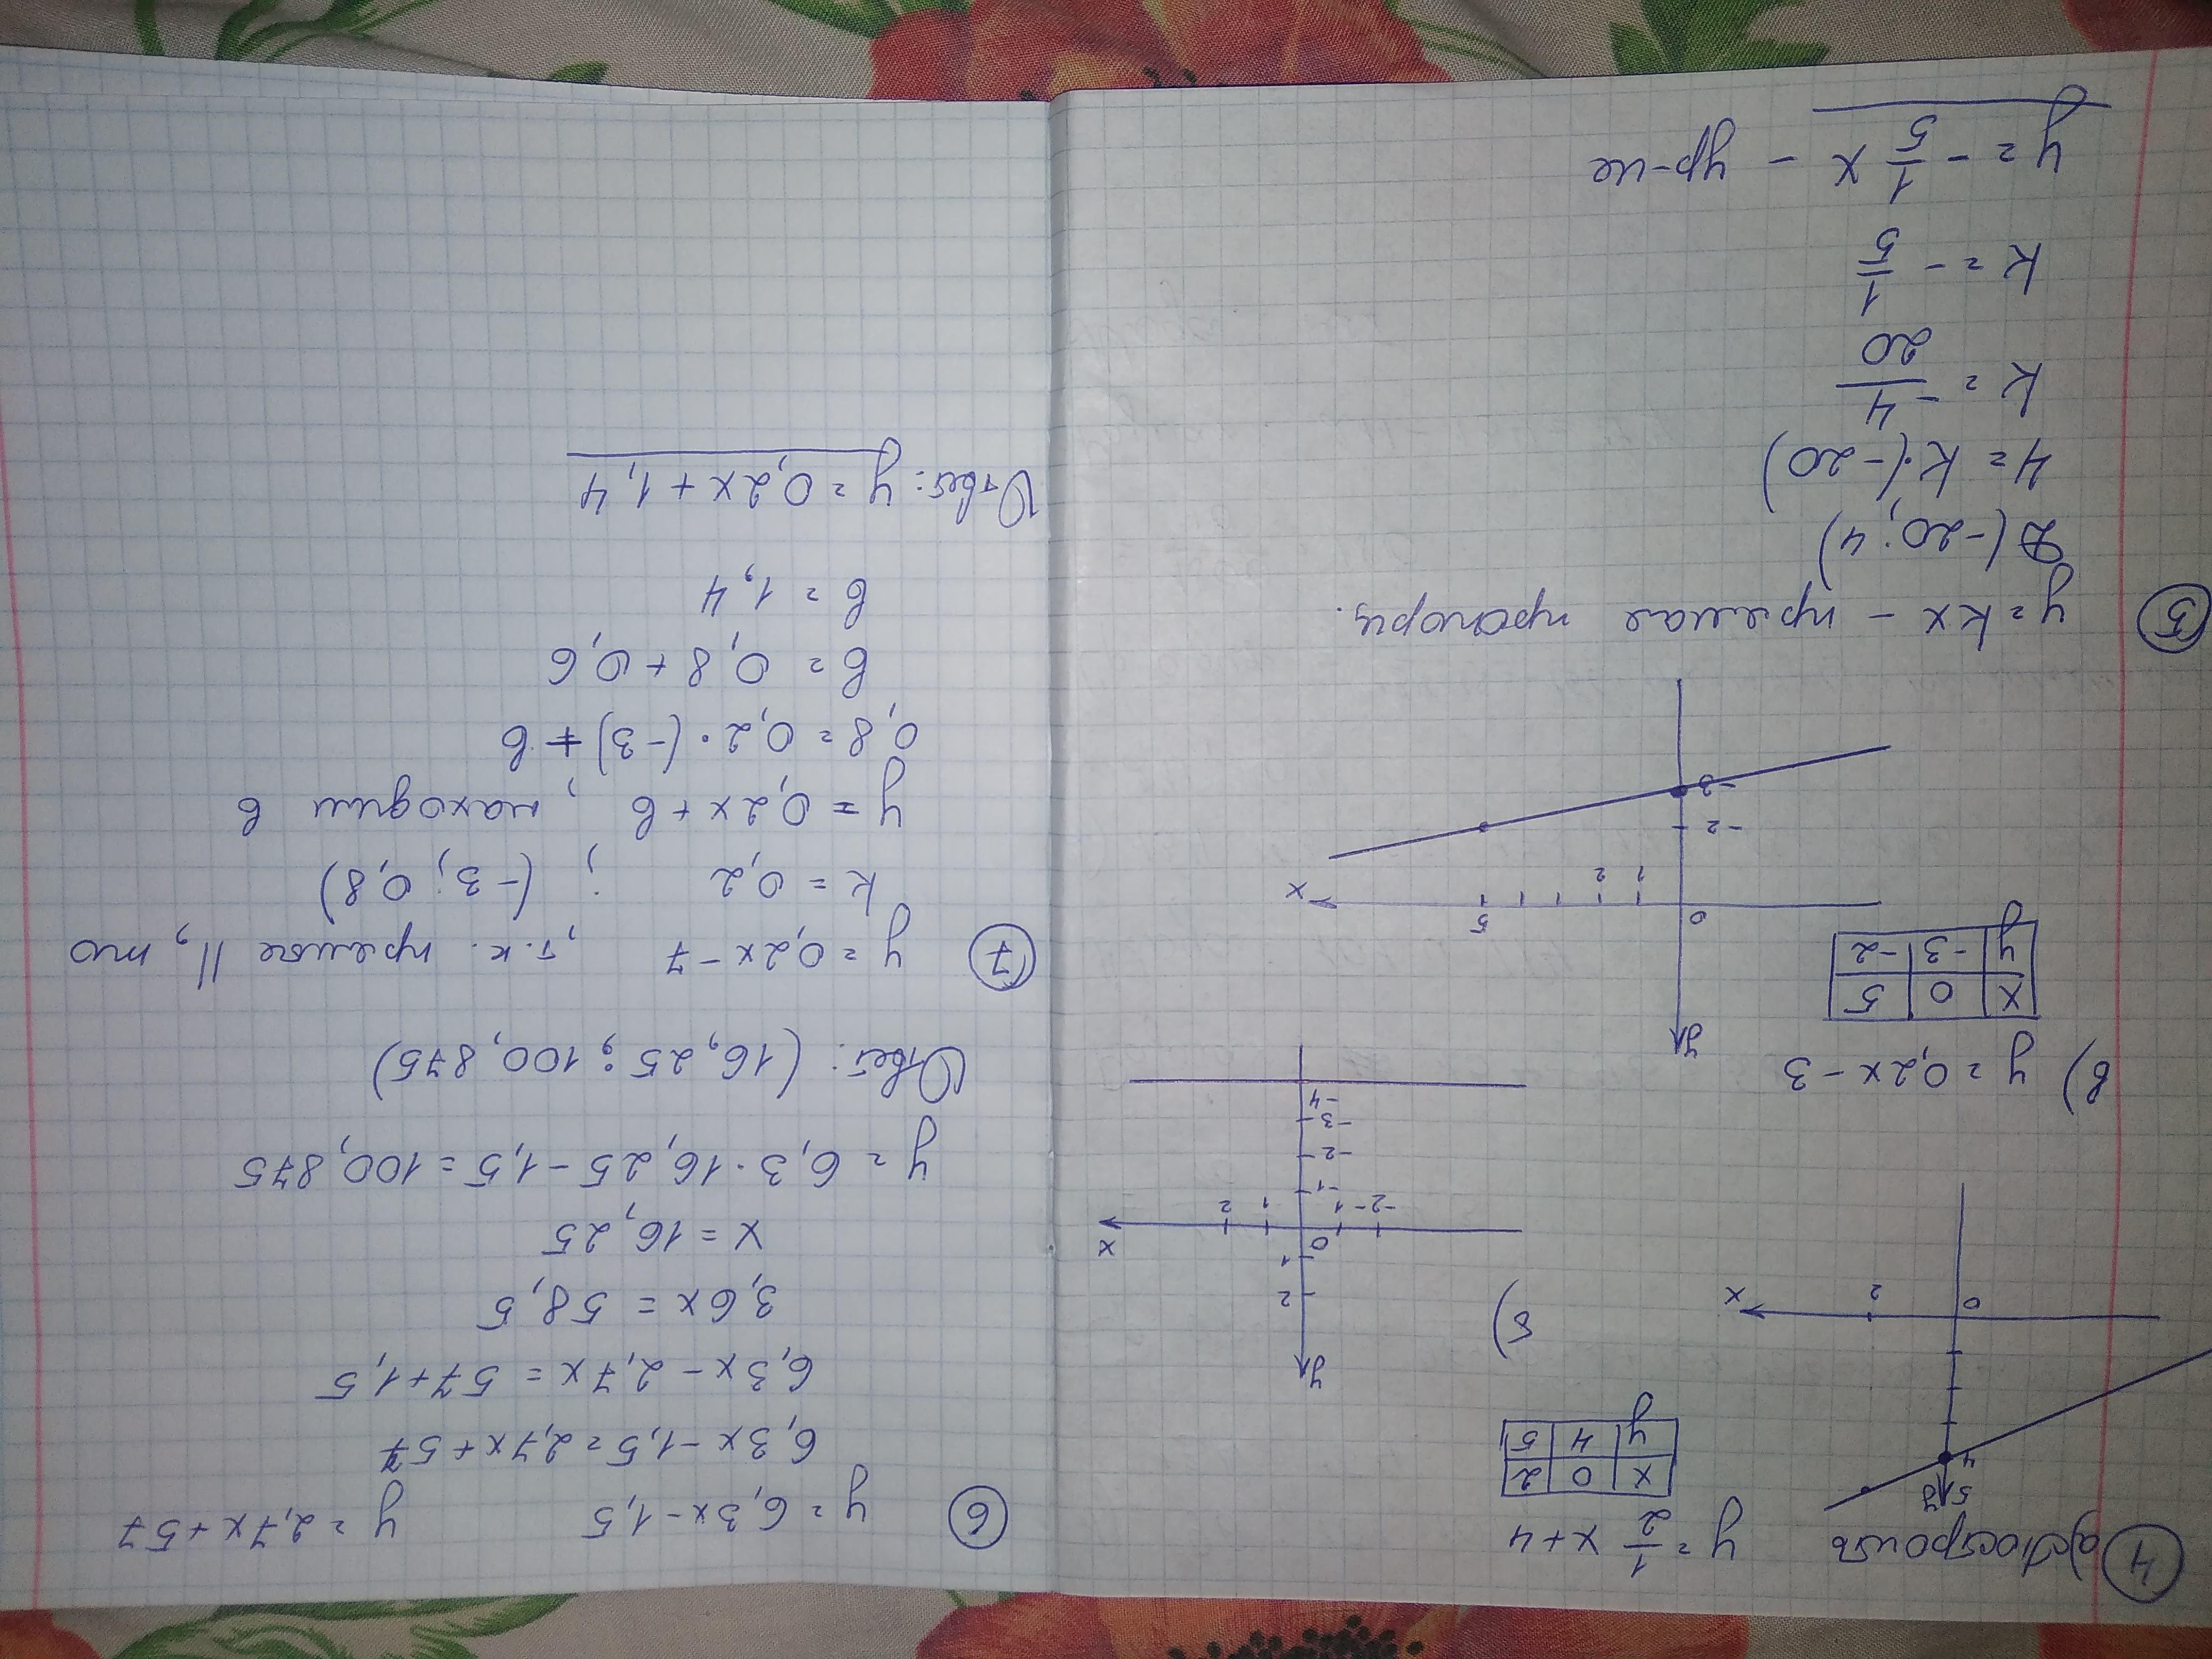 ④ а) Построить y = 1/2 x + 4
x 0 2
y 4 5
y
5
4
0
2
x
б)
y
2
1
x
2
1
0
-1
-2
-1
-2
-3
-4
в) y = 0,2x - 3
x 0 5
y -3 -2
y
0
1
2
5
x
-2
-3
⑤ y = kx - прямая пропорц.
D (-20; 4)
4 = k·(-20)
k = - 4/20
k = - 1/5
y = - 1/5 x - ур-ие
⑥ y = 6,3x - 1,5 y = 2,7x + 57
6,3x - 1,5 = 2,7x + 57
6,3x - 2,7x = 57 + 1,5
3,6x = 58,5
x = 16,25
y = 6,3 · 16,25 - 1,5 = 100,875
Ответ: (16,25; 100,875)
⑦ y = 0,2x - 7 , т.к. прямые ||, то
k = 0,2 ; (-3; 0,8)
y = 0,2x + b , находим b
0,8 = 0,2 · (-3) + b
b = 0,8 + 0,6
b = 1,4
Ответ: y = 0,2x + 1,4